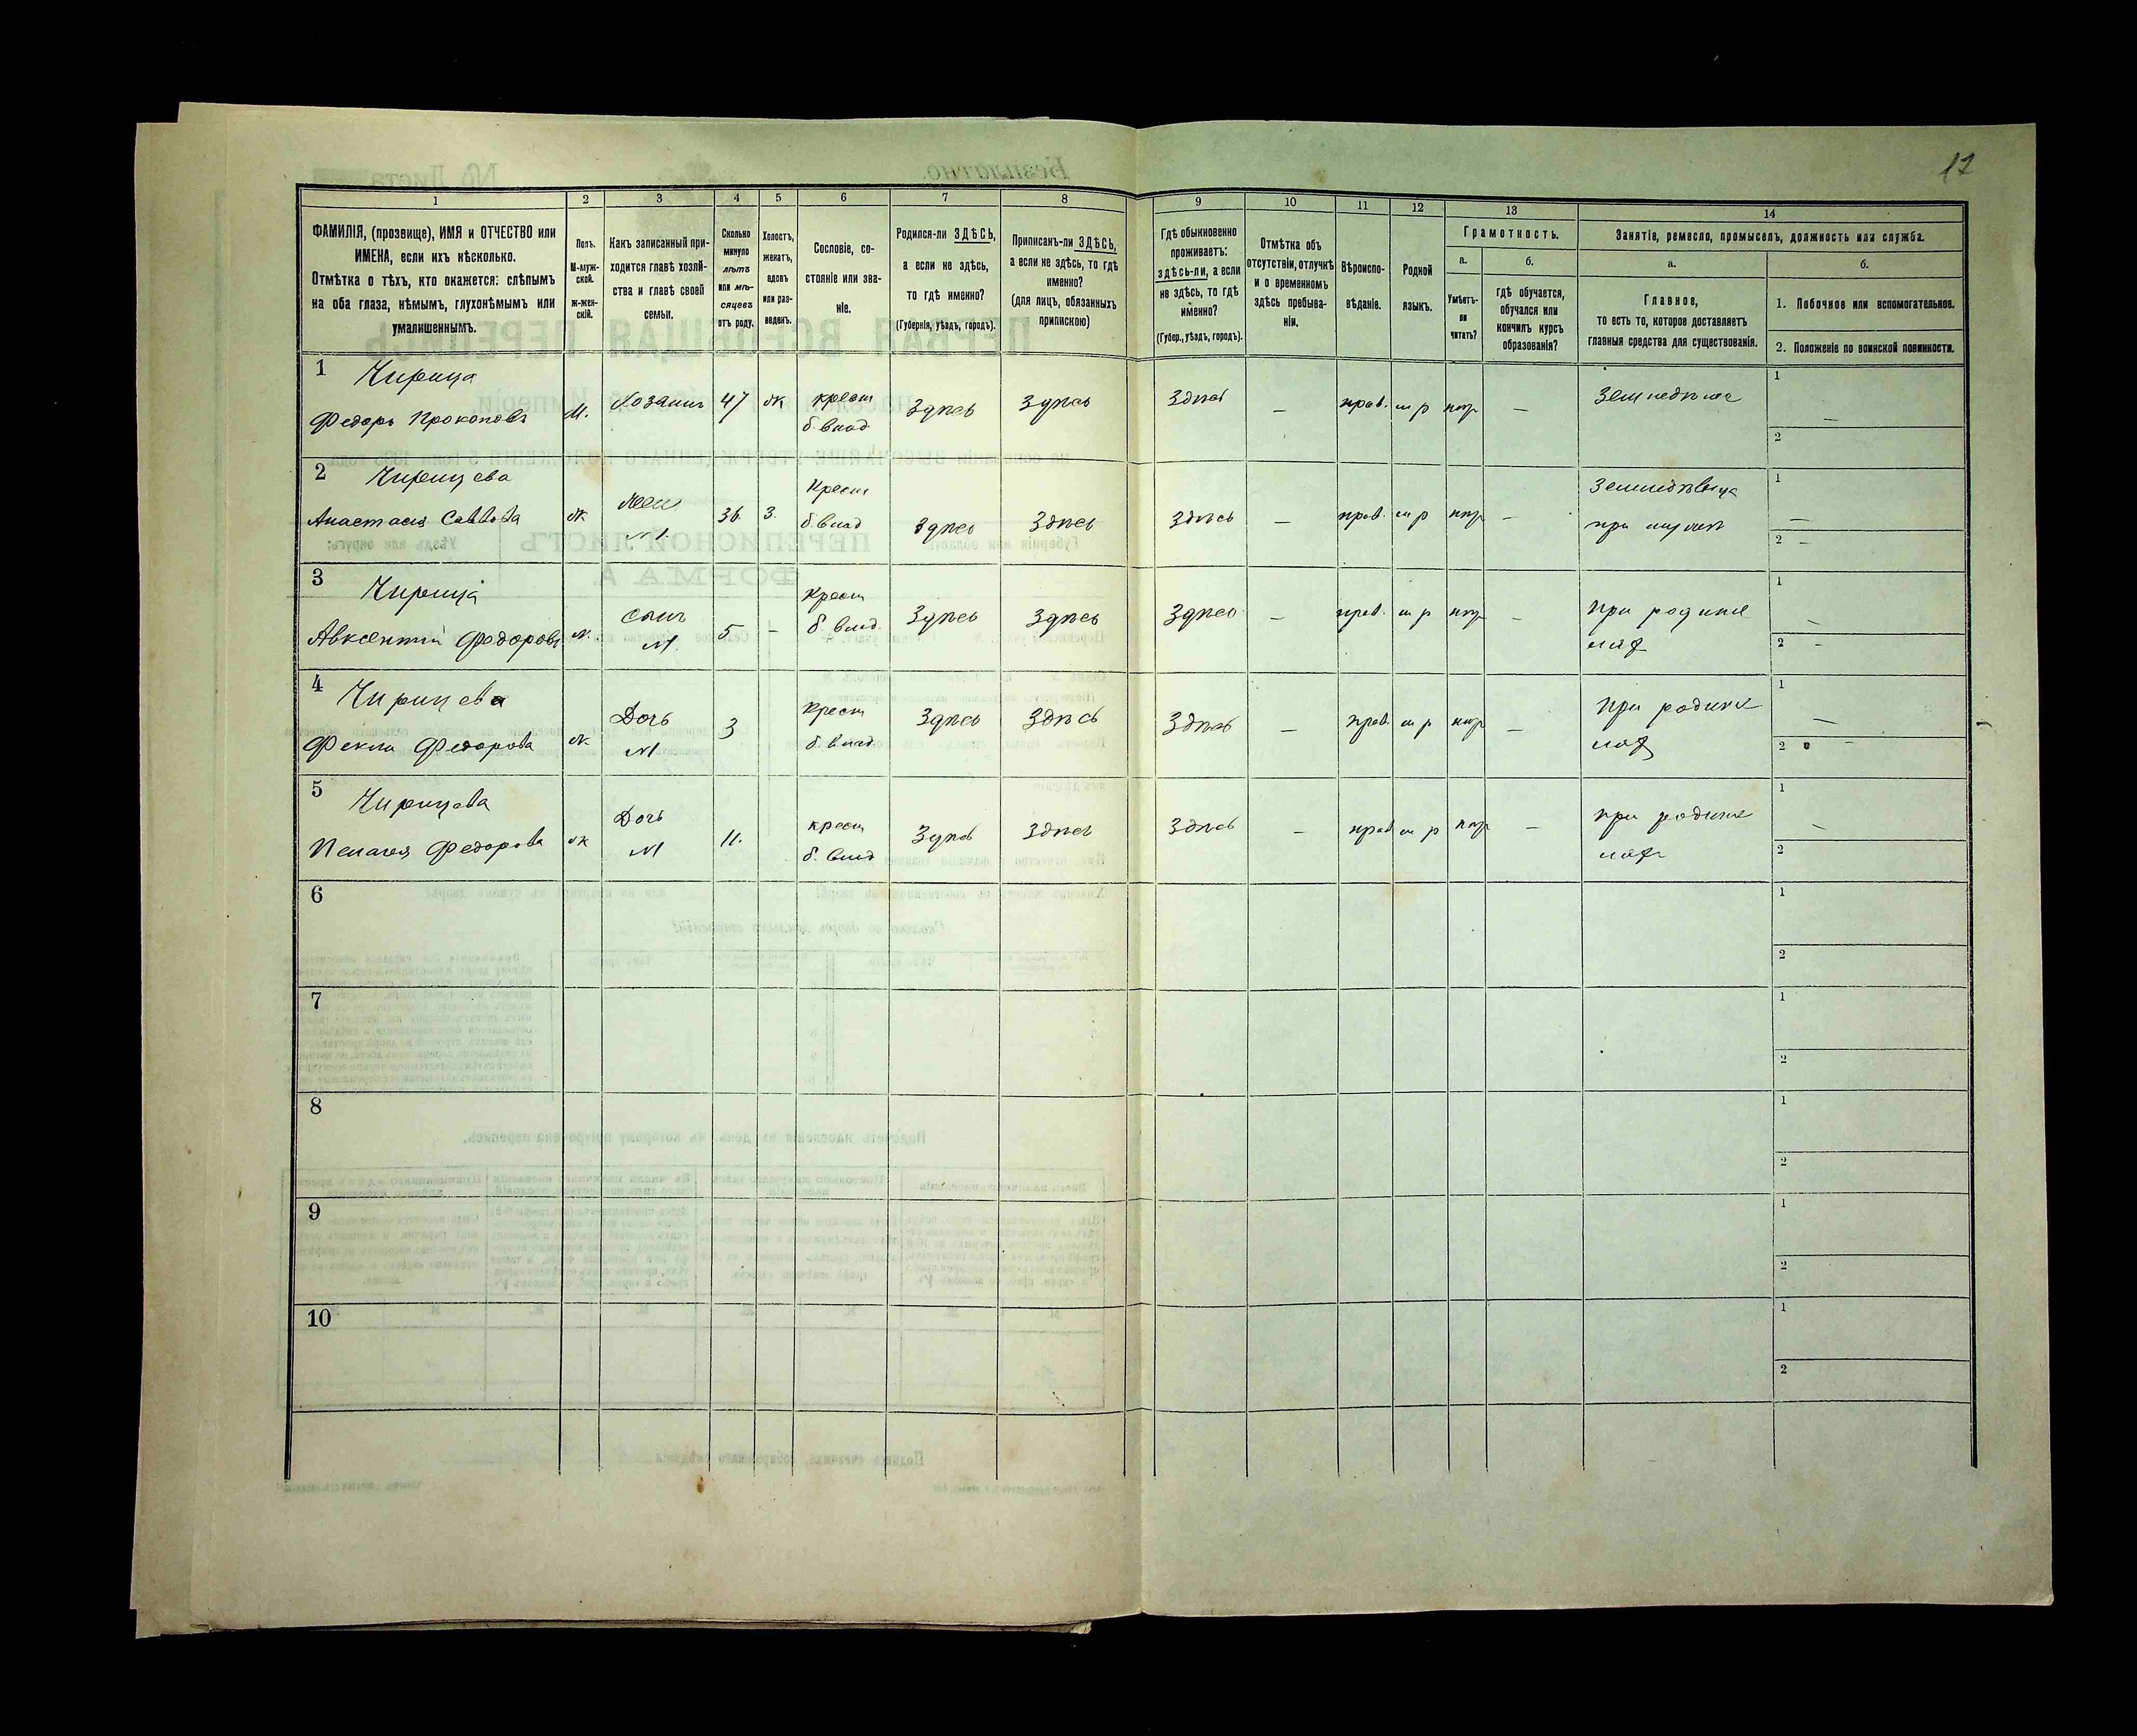 17
1
2
3
4
5
6
7
8
9
10
11
12
13
14
ФАМИЛІЯ, (прозвище), ИМЯ и ОТЧЕСТВО или
ИМЕНА, если ихъ нѣсколько.
Отмѣтка о тѣхъ, кто окажется: слѣпымъ
на оба глаза, нѣмымъ, глухонѣмымъ или
умалишеннымъ.
Полъ.
М-муж-
ской.
ж-жен-
скій.
Какъ записанный при-
ходится главѣ хозяй-
ства и главѣ своей
семьи.
Сколько
минуло
лѣтъ
или мѣ-
сяцевъ
отъ роду.
Холостъ,
женатъ,
вдовъ
или раз-
веденъ.
Сословіе, со-
стояніе или зва-
ніе.
Родился-ли ЗДѢСЬ,
а если не здѣсь,
то гдѣ именно?
(Губернія, уѣздъ, городъ).
Приписанъ-ли ЗДѢСЬ,
а если не здѣсь, то гдѣ
именно?
(для лицъ, обязанныхъ
припискою)
Гдѣ обыкновенно
проживаетъ:
здѣсь-ли, а если
не здѣсь, то гдѣ
именно?
(Губер., уѣздъ, городъ).
Отмѣтка объ
отсутствіи, отлучкѣ
и о временномъ
здѣсь пребыва-
ніи.
Вѣроиспо-
вѣданіе.
Родной
языкъ.
Грамотность.
а.
Умѣетъ-
ли
читать?
б.
гдѣ обучается,
обучался или
кончилъ курсъ
образованія?
Занятіе, ремесло, промыселъ, должность или служба.
а.
Главное,
то есть то, которое доставляетъ
главныя средства для существованія.
б.
1. Побочное или вспомогательное.
2. Положеніе по воинской повинности.
1 Чирица
Федоръ Прокоповъ М. Хозяинъ 47 ж крест
б. влад Здѣсь Здѣсь Здѣсь — прав. м р нѣр — Земледѣліе 1 —
2
2 Чирицева
Анастасія Саввова ж Жена
М. 36 3. Крест
б. влад Здѣсь Здѣсь Здѣсь — прав. м р нѣр — Земледѣлица
при мужѣ 1 —
2 —
3 Чирица
Авксентій Федоровъ м. сынъ
М. 5 — Крест
б. влад. Здѣсь Здѣсь Здѣсь — прав. м р нѣр — при родите
ляхъ 1 —
2 —
4 Чирицева
Фекла Федорова ж Дочь
М 3 Крест
б. влад. Здѣсь Здѣсь Здѣсь — прав. м р нѣр — при родите
ляхъ 1 —
2 —
5 Чирицева
Пелагея Федорова ж Дочь
М 11. крест
б. влад Здѣсь Здѣсь Здѣсь — прав м р нѣр — при родите
ляхъ 1 —
2
6 1
2
7 1
2
8 1
2
9 1
2
10 1
2